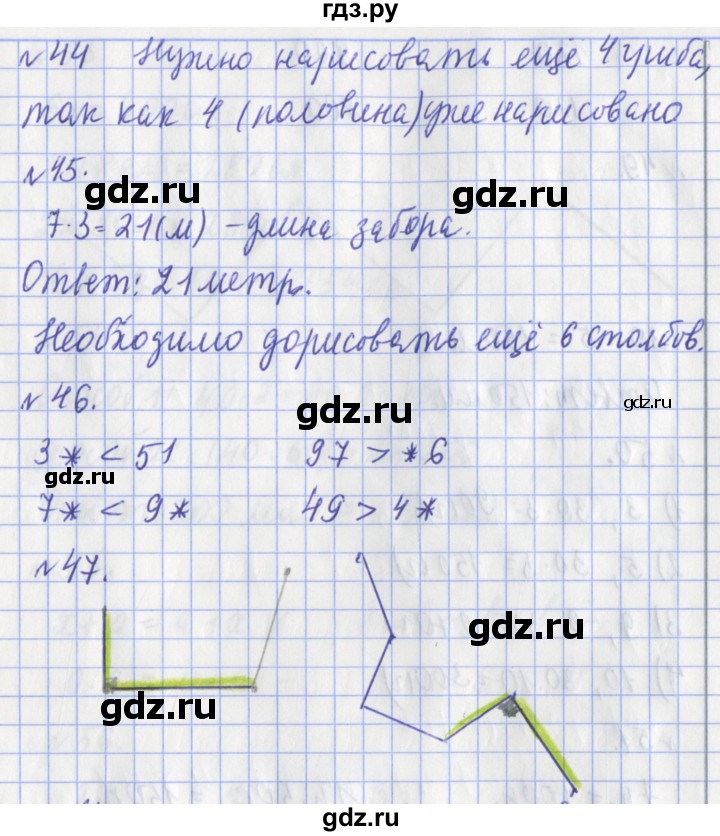 гдз.ру
№44 Нужно нарисовать ещё 4 гриба,
так как 4 (половина) уже нарисовано
№45.
gdz.ru
gdz.ru
7·3=21(м) – длина забора.
Ответ: 21 метр.
Необходимо дорисовать ещё 6 столбов.
№46.
gdz.ru
gdz.ru
3* < 51 97 > *6
gdz.ru
7* < 9* 49 > 4*
№47.
gdz.ru
gdz.ru
gdz.ru